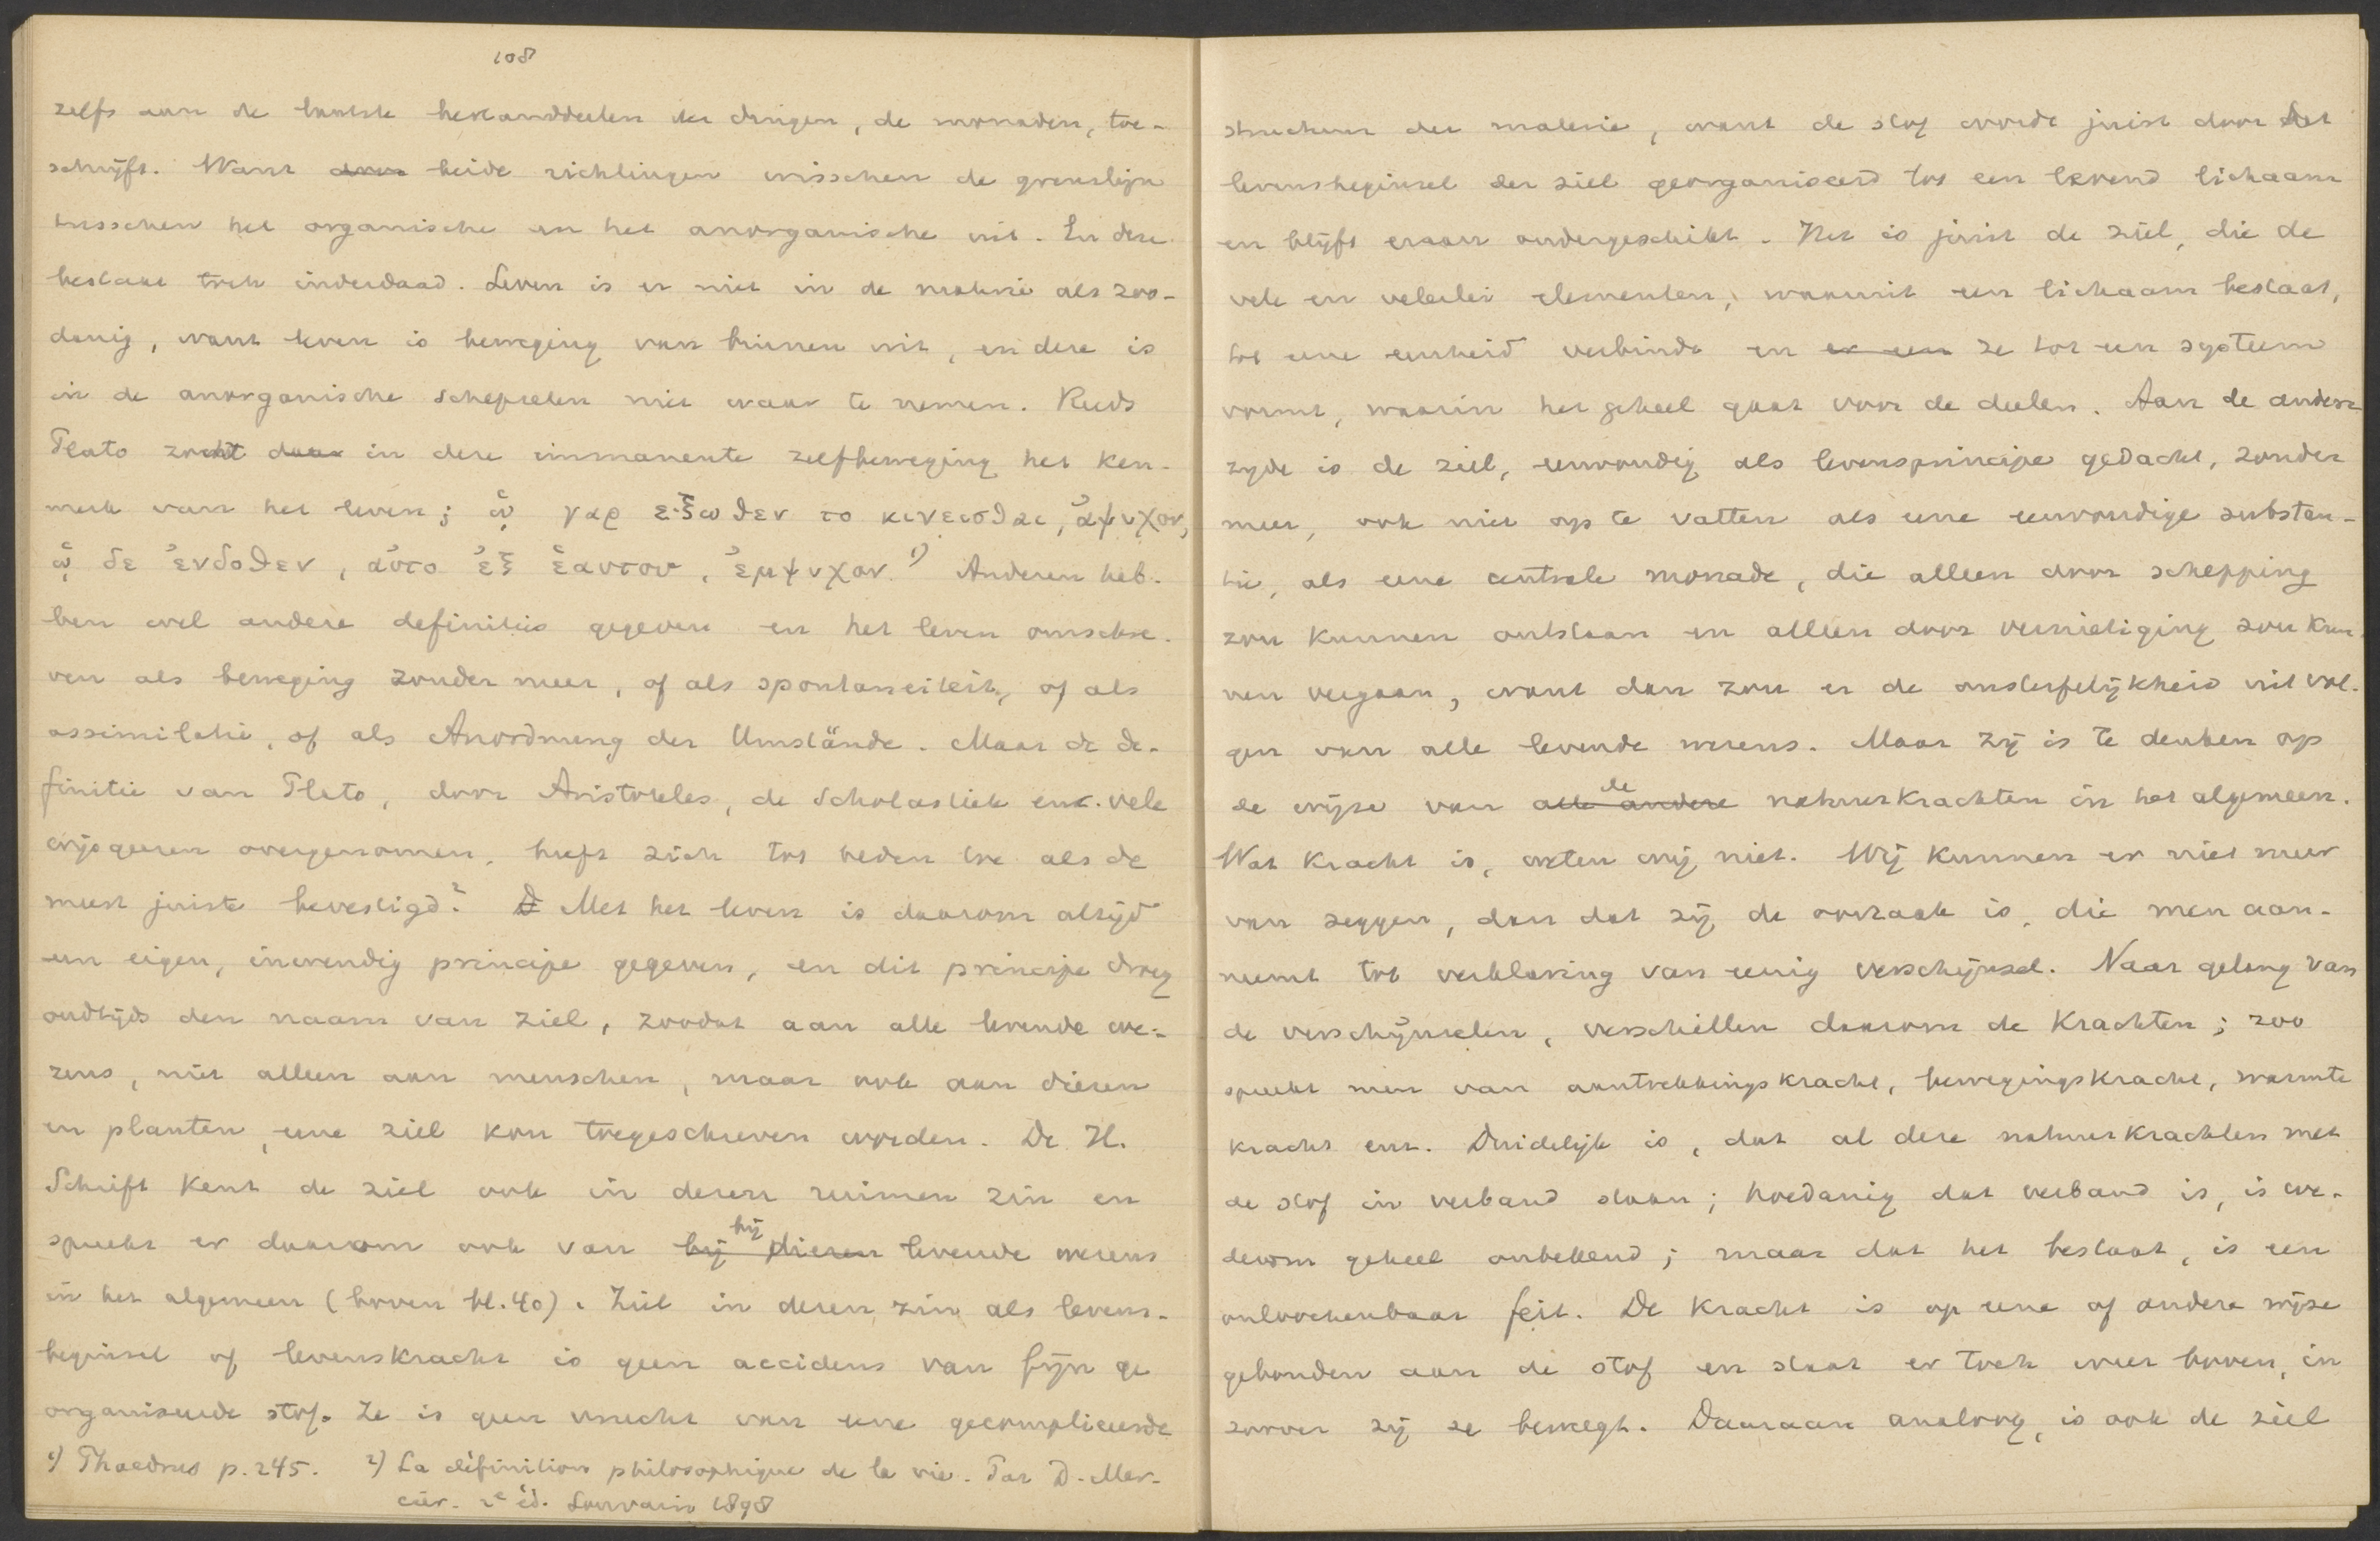 108
zelfs aan de laatste bestanddeelen der dingen, de monaden, toe-
schrijft. Want door beide richtingen wisschen de grenslijn
tusschen het organische en het anorganische uit. En deze
bestaat toch inderdaad. Leven is er niet in de materie als zoo-
danig, want leven is beweging van binnen uit, en deze is
in de anorganische schepselen niet waar te nemen. Reeds
Plato zocht daar in deze immanente zelfbeweging het ken-
merk van het leven; ᾧ γαρ ἐξωθεν το κινεισθαι, ἀψυχον,
ᾧ δε ἐνδοθεν, αὐτο ἐξ ἑαυτου, ἐμψυχον. 1) Anderen heb-
ben wel andere definities gegeven en het leven omschre-
ven als beweging zonder meer, of als spontaneiteit, of als
assimilatie, of als Anordnung der Umstände. Maar de de-
finitie van Plato, door Aristoteles, de Scholastiek en vele
wijsgeeren overgenomen, heeft zich tot heden toe als de
meest juiste bevestigd. 2 D Met het leven is daarom altijd
een eigen, inwendig principe gegeven, en dit principe droeg
oudtijds den naam van ziel, zoodat aan alle levende we-
zens, niet alleen aan menschen, maar ook aan dieren
en planten, eene ziel kon toegeschreven worden. De H.
Schrift kent de ziel ook in dezen ruimen zin en
spreekt er daarom ook van bij dieren bij levende wezens
in het algemeen (boven bl. 40). Ziel in dezen zin als levens-
beginsel of levenskracht is geen accidens van fijn ge
organiseerde stof. Ze is geen vrucht van eene gecompliceerde
1) Phaedrus p. 245. 2) La définition philosophique de la vie. Par D. Mer-
cier. 2e éd. Louvain 1898
structuur der materie, want de stof wordt juist door het
levensbeginsel der ziel georganiseerd tot een levend lichaam
en blijft eraan ondergeschikt. Het is juist de ziel, die de
vele en velerlei elementen, waaruit een lichaam bestaat,
tot eene eenheid verbindt en er een ze tot een systeem
vormt, waarin het geheel gaat voor de deelen. Aan de andere
zijde is de ziel, eenvoudig als levensprincipe gedacht, zonder
meer, ook niet op te vatten als eene eenvoudige substan-
tie, als eene centrale monade, die alleen door schepping
zou kunnen ontstaan en alleen door vernietiging zou kun-
nen vergaan, want dan zou er de onsterfelijkheid uit vol-
gen van alle levende wezens. Maar zij is te denken op
de wijze van alle andere de natuurkrachten in het algemeen.
Wat kracht is, weten wij niet. Wij kunnen er niet meer
van zeggen, dan dat zij de oorzaak is, die men aan-
neemt tot verklaring van eenig verschijnsel. Naar gelang van
de verschijnselen, verschillen daarom de krachten; zoo
spreekt men van aantrekkingskracht, bewegingskracht, warmte
kracht enz. Duidelijk is, dat al deze natuurkrachten met
de stof in verband staan; hoedanig dat verband is, is we-
derom geheel onbekend; maar dat het bestaat, is een
onloochenbaar feit. De kracht is op eene of andere wijze
gebonden aan de stof en staat er toch weer boven, in
zoover zij ze beweegt. Daaraan analoog, is ook de ziel